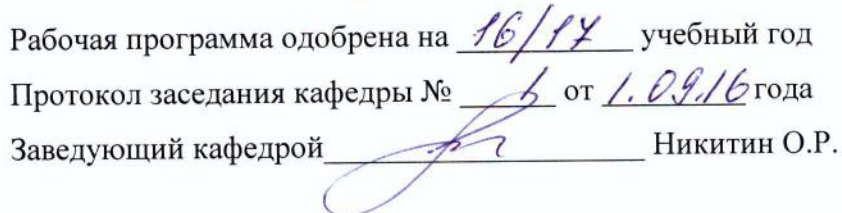 Рабочая программа одобрена на 16/17 учебный год
Протокол заседания кафедры № 1 от 1.09.16 года
Заведующий кафедрой Никитин О.Р.